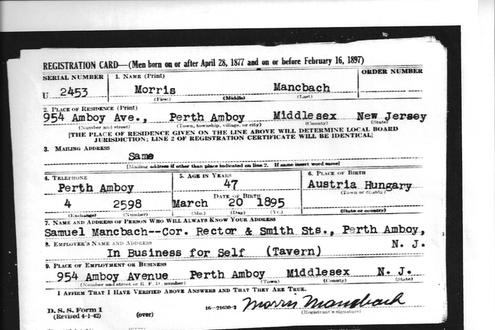 REGISTRATION CARD—(Men born on or after April 28, 1877 and on or before February 16, 1897)
SERIAL NUMBER 1. NAME (Print) ORDER NUMBER
U 2453 Morris Mancbach
(First) (Middle) (Last)
2. PLACE OF RESIDENCE (Print)
954 Amboy Ave., Perth Amboy Middlesex New Jersey
(Number and street) (Town, township, village, or city) (County) (State)
[THE PLACE OF RESIDENCE GIVEN ON THE LINE ABOVE WILL DETERMINE LOCAL BOARD
JURISDICTION; LINE 2 OF REGISTRATION CERTIFICATE WILL BE IDENTICAL]
3. MAILING ADDRESS
Same
[Mailing address if other than place indicated on line 2. If same insert word same]
4. TELEPHONE 5. AGE IN YEARS 6. PLACE OF BIRTH
Perth Amboy 47 Austria Hungary
DATE OF BIRTH (Town or county)
4 2598 March 20 1895
(Exchange) (Number) (Mo.) (Day) (Yr.) (State or country)
7. NAME AND ADDRESS OF PERSON WHO WILL ALWAYS KNOW YOUR ADDRESS
Samuel Mancbach--Cor. Rector & Smith Sts., Perth Amboy,
8. EMPLOYER'S NAME AND ADDRESS N. J.
In Business for Self (Tavern)
9. PLACE OF EMPLOYMENT OR BUSINESS
954 Amboy Avenue Perth Amboy Middlesex N. J.
(Number and street or R. F. D. number) (Town) (County) (State)
I AFFIRM THAT I HAVE VERIFIED ABOVE ANSWERS AND THAT THEY ARE TRUE.
D. S. S. Form 1
(Revised 4-1-42) (over) 16—21630-2 Morris Mancbach
(Registrant's signature)